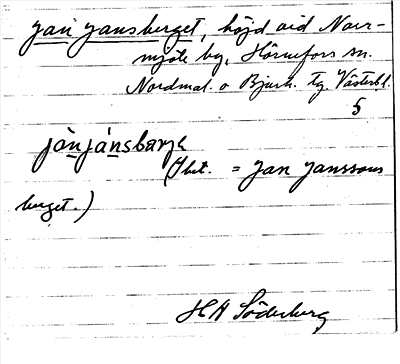 Jan Jansberget, höjd vid Norr-
mjöle by, Hörnefors sn.
Nordmal. o Bjurh. tg. Västerbl.
5
jànjánsbarjə
= Jan Janssons
berget.)
H A Söderberg